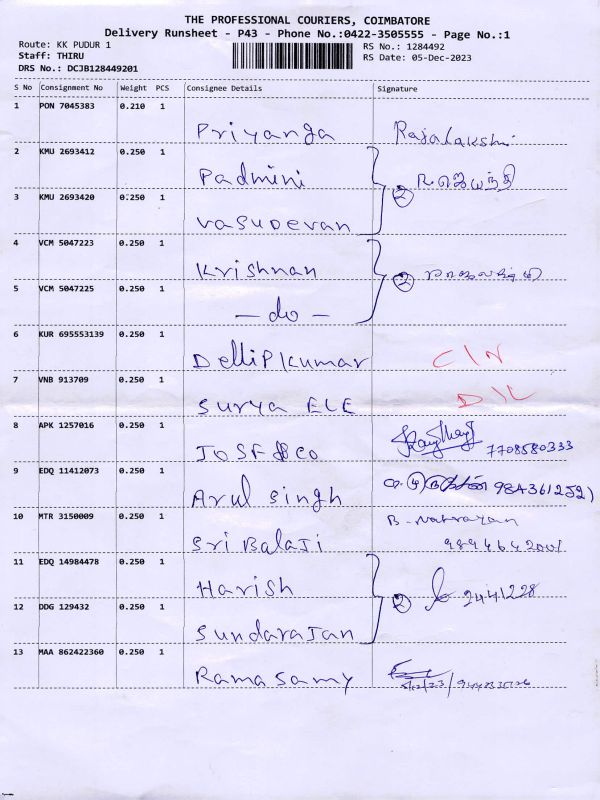 THE PROFESSIONAL COURIERS, COIMBATORE
Delivery Runsheet - P43 - Phone No.:0422-3505555 - Page No.:1
Route: KK PUDUR 1
Staff: THIRU
DRS No.: DCJB128449201
RS No.: 1284492
RS Date: 05-Dec-2023
S No Consignment No Weight PCS Consignee Details Signature
1 PON 7045383 0.210 1 Priyanga Rajalakshmi
2 KMU 2693412 0.250 1 Padmini
2
3 KMU 2693420 0.250 1 Vasudevan
4 VCM 5047223 0.250 1 Krishnan
2
5 VCM 5047225 0.250 1 - do -
6 KUR 695553139 0.250 1 DelliPKumar C/N
7 VNB 913709 0.250 1 Surya ELE D/L
8 APK 1257016 0.250 1 JOSF & Co 7708580333
9 EDQ 11412073 0.250 1 Arul Singh
10 MTR 3150009 0.250 1 Sri BalaJi B. Natrayan
11 EDQ 14984478 0.250 1 Harish
2 2441228
12 DDG 129432 0.250 1 SundaraJan
13 MAA 862422360 0.250 1 Ramasamy
5/12/23